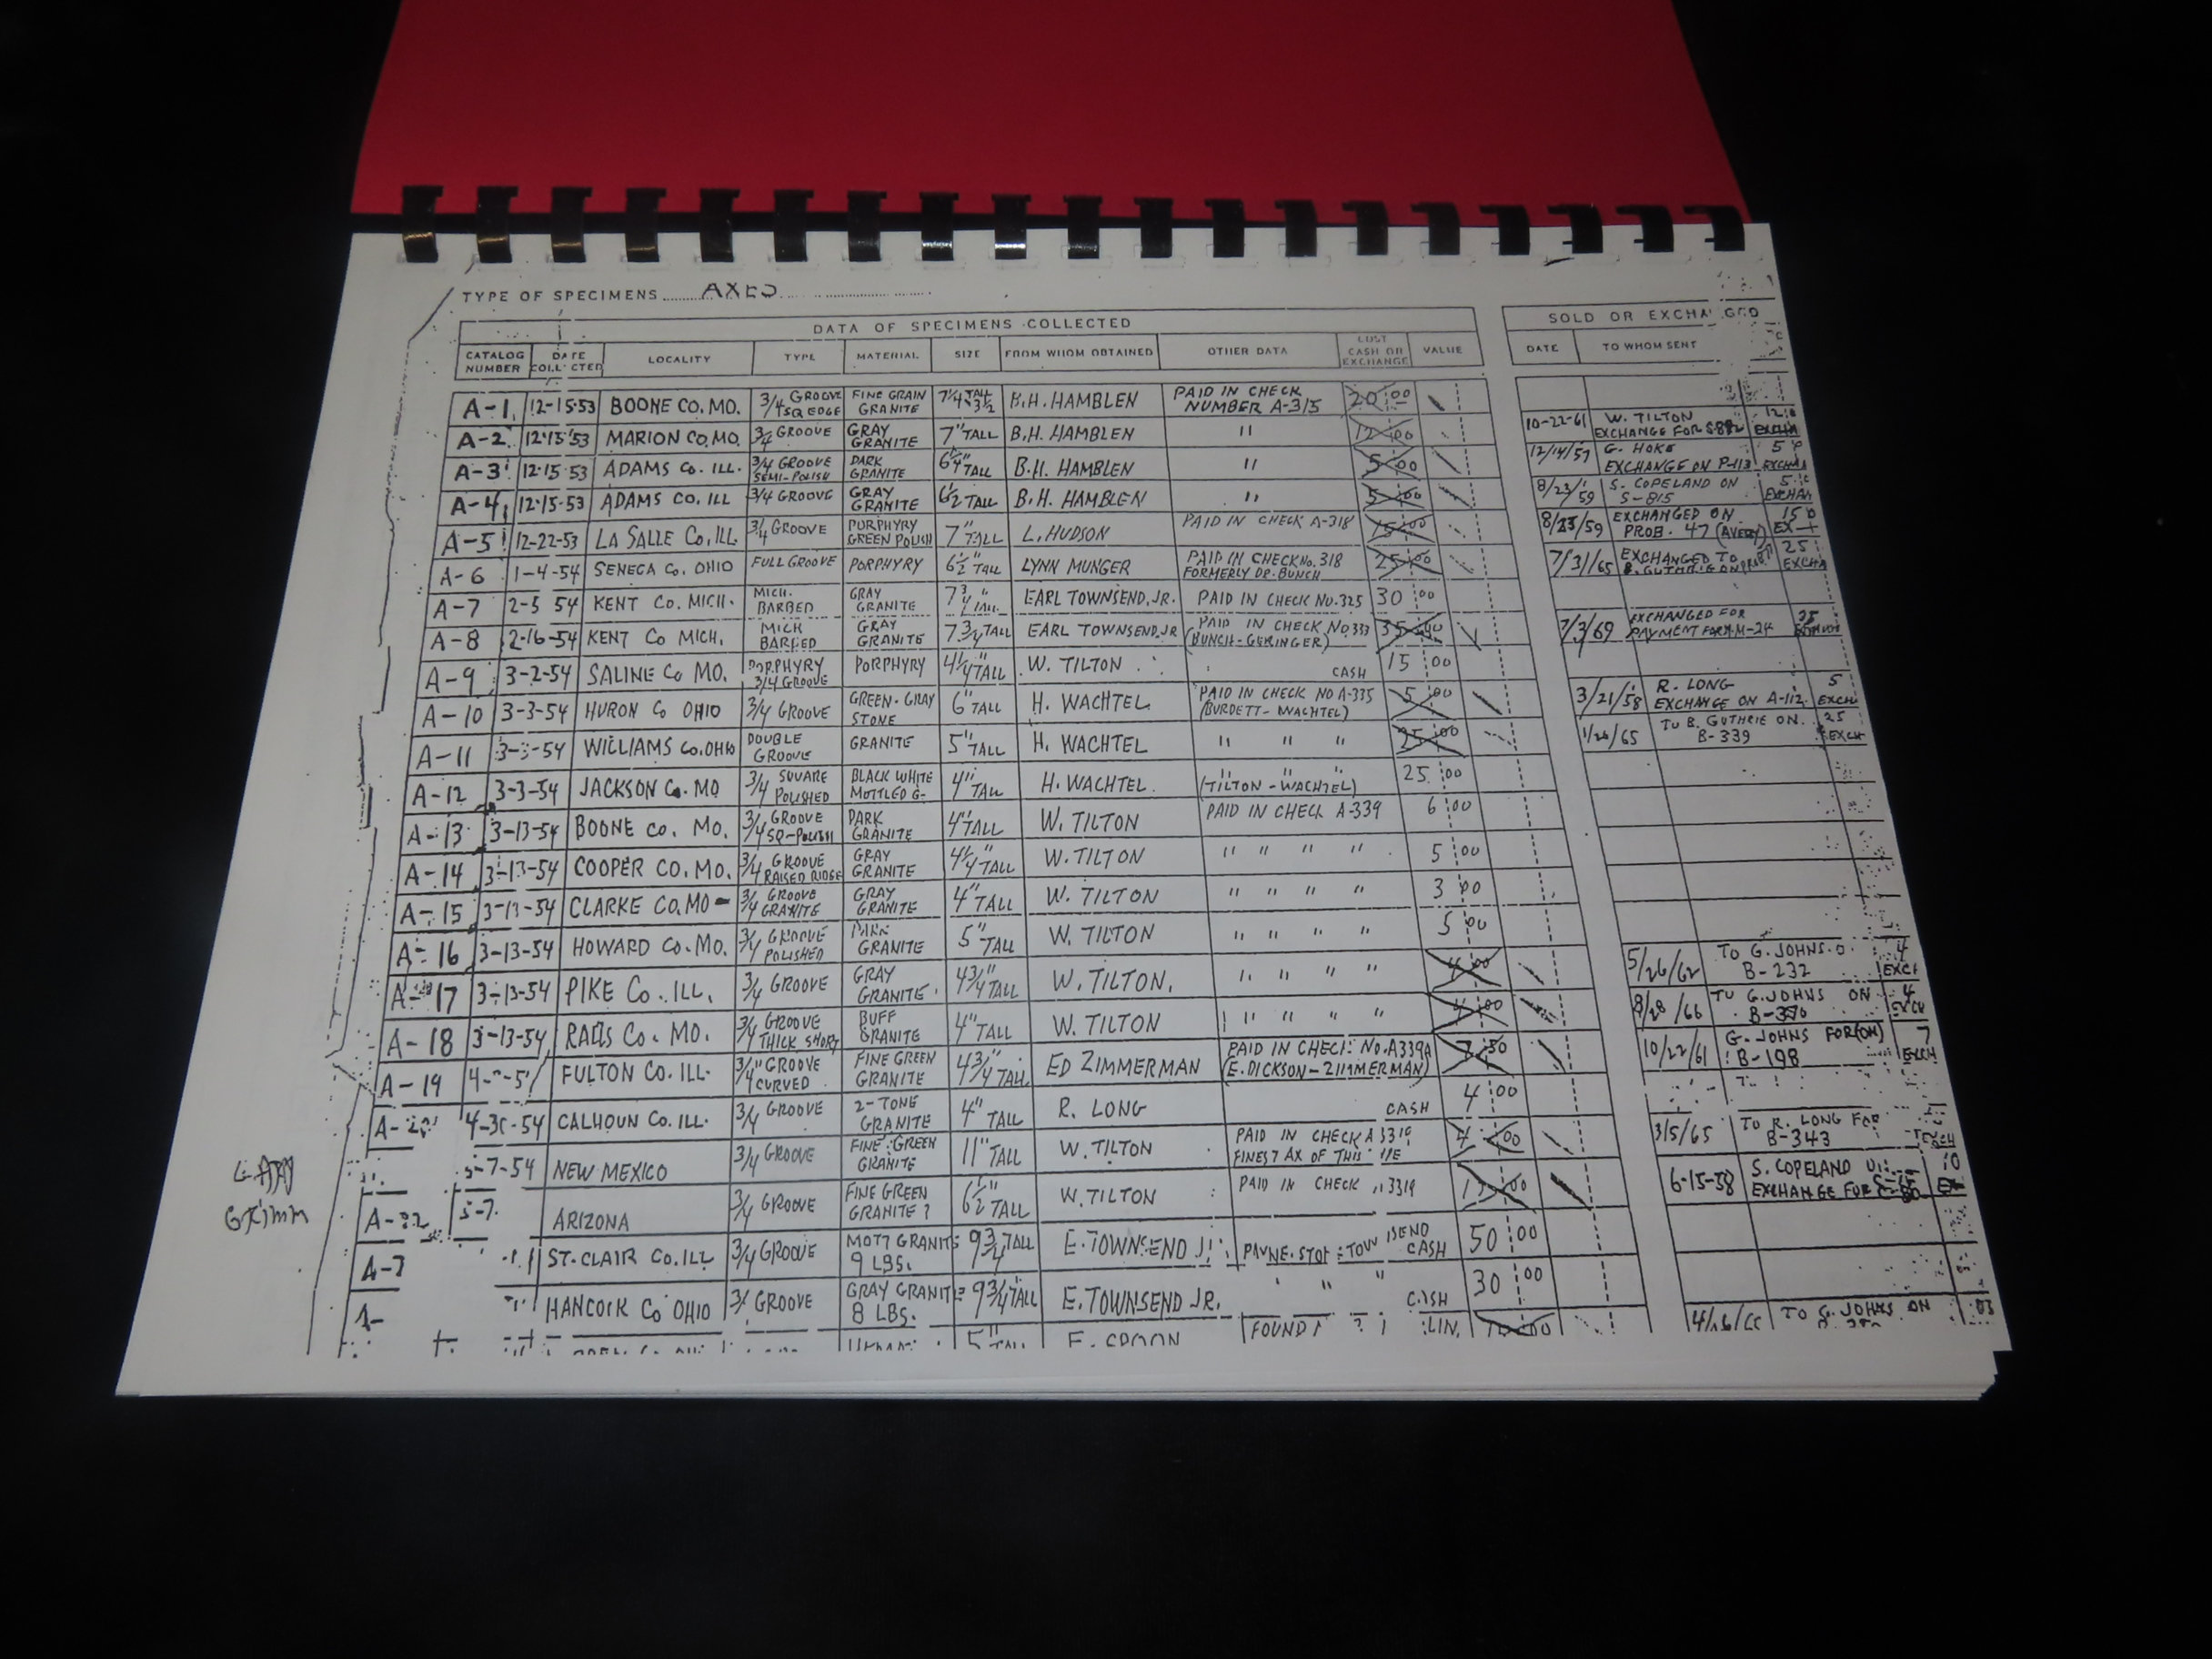 TYPE OF SPECIMENS AXES
DATA OF SPECIMENS COLLECTED SOLD OR EXCHANGED
CATALOG NUMBER DATE COLLECTED LOCALITY TYPE MATERIAL SIZE FROM WHOM OBTAINED OTHER DATA COST CASH OR EXCHANGE VALUE DATE TO WHOM SENT
A-1 12-15-53 BOONE CO. MO. 3/4 GROOVE SQ EDGE FINE GRAIN GRANITE B.H. HAMBLEN PAID IN CHECK NUMBER A-315 20 00
A-2 12-15-53 MARION CO. MO. 3/4 GROOVE GRAY GRANITE 7" TALL B.H. HAMBLEN " 12 00 10-22-61 W. TILTON EXCHANGE FOR
A-3 12-15-53 ADAMS CO. ILL. 3/4 GROOVE SEMI-POLISH DARK GRANITE TALL B.H. HAMBLEN " 5 00 12/14/57 G. HOKE EXCHANGE ON P-113
A-4 12-15-53 ADAMS CO. ILL 3/4 GROOVE GRAY GRANITE 6 1/2 TALL B.H. HAMBLEN " 5 00 8/23/59 S. COPELAND ON S-815
A-5 12-22-53 LA SALLE CO. ILL. 3/4 GROOVE PORPHYRY GREEN POLISH 7" TALL L. HUDSON PAID IN CHECK A-318 15 00 8/23/59 EXCHANGED ON PROB. 47 (AVERY)
A-6 1-4-54 SENECA CO. OHIO FULL GROOVE PORPHYRY 6 1/2" TALL LYNN MUNGER PAID IN CHECK No. 318 FORMERLY DR. BUNCH 25 00 7/31/65 EXCHANGED TO B. GUTHRIE ON 25
A-7 2-5 54 KENT CO. MICH. MICH. BARBED GRAY GRANITE EARL TOWNSEND, JR. PAID IN CHECK No. 325 30 00
A-8 2-16-54 KENT CO MICH. MICH BARBED GRAY GRANITE 7 3/4 TALL EARL TOWNSEND, JR PAID IN CHECK No 333 (BUNCH-GERINGER) 35 00 7/3/69 EXCHANGED FOR PAYMENT FOR M-24
A-9 3-2-54 SALINE CO MO. PORPHYRY 3/4 GROOVE PORPHYRY 4 1/4" TALL W. TILTON CASH 15 00
A-10 3-3-54 HURON CO OHIO 3/4 GROOVE GREEN-GRAY STONE 6" TALL H. WACHTEL PAID IN CHECK NO A-335 (BURDETT-WACHTEL) 5 00 3/21/58 R. LONG EXCHANGE ON A-112 5
A-11 3-3-54 WILLIAMS CO. OHIO DOUBLE GROOVE GRANITE 5" TALL H. WACHTEL " " " 25 00 1/26/65 TO B. GUTHRIE ON B-339 25
A-12 3-3-54 JACKSON CO. MO 3/4 SQUARE POLISHED BLACK WHITE MOTTLED G- 4" TALL H. WACHTEL " " " (TILTON-WACHTEL) 25 00
A-13 3-13-54 BOONE CO. MO. 3/4 GROOVE SQ-POLISH DARK GRANITE 4" TALL W. TILTON PAID IN CHECK A-339 6 00
A-14 3-13-54 COOPER CO. MO. 3/4 GROOVE RAISED RIDGE GRAY GRANITE 4 1/4" TALL W. TILTON " " " " 5 00
A-15 3-13-54 CLARKE CO. MO 3/4 GROOVE GRANITE GRAY GRANITE 4" TALL W. TILTON " " " " 3 00
A-16 3-13-54 HOWARD CO. MO. 3/4 GROOVE POLISHED GRANITE 5" TALL W. TILTON " " " " 5 00
A-17 3-13-54 PIKE CO. ILL. 3/4 GROOVE GRAY GRANITE 4 3/4" TALL W. TILTON. " " " " 4 00 5/26/62 TO G. JOHNS B-232 4
A-18 3-13-54 RALLS CO. MO. 3/4 GROOVE THICK SHORT BUFF GRANITE 4" TALL W. TILTON " " " " 4 00 8/28/66 TO G. JOHNS ON 4
A-19 FULTON CO. ILL. 3/4" GROOVE CURVED FINE GREEN GRANITE 4 3/4" TALL ED ZIMMERMAN PAID IN CHECK No. A339A (E. DICKSON-ZIMMERMAN) 7 50 10/22/61 G. JOHNS FOR (ON) B-198 7
CALHOUN CO. ILL. 3/4 GROOVE 2-TONE GRANITE 4" TALL R. LONG CASH 4 00
NEW MEXICO 3/4 GROOVE FINE GREEN GRANITE 11" TALL W. TILTON PAID IN CHECK FINEST AX OF THIS 00 3/5/65 TO R. LONG FOR B-343
ARIZONA 3/4 GROOVE FINE GREEN GRANITE ? 6 1/2" TALL W. TILTON PAID IN CHECK 00 6-15-58 S. COPELAND EXCHANGE FOR 10
ST. CLAIR CO. ILL 3/4 GROOVE MOTT GRANITE 9 LBS. 9 3/4 TALL E. TOWNSEND CASH 50 00
HANCOCK CO OHIO 3/4 GROOVE GRAY GRANITE 8 LBS. 9 3/4" TALL E. TOWNSEND JR. " " CASH 30 00
5" TALL E. SPOON FOUND TO G. JOHNS ON